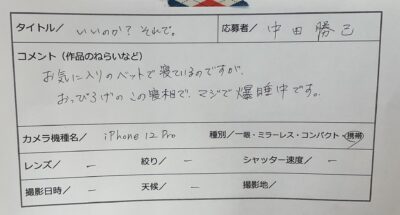 タイトル／ いいのか？それで。 応募者／ 中田勝己
コメント（作品のねらいなど）
お気に入りのベットで寝ているのですが、
おっぴろげの この寝相で、マジで爆睡中です。
カメラ機種名／ iPhone 12 Pro 種別／一眼・ミラーレス・コンパクト・携帯
レンズ／ － 絞り／ － シャッター速度／ －
撮影日時／ － 天候／ － 撮影地／